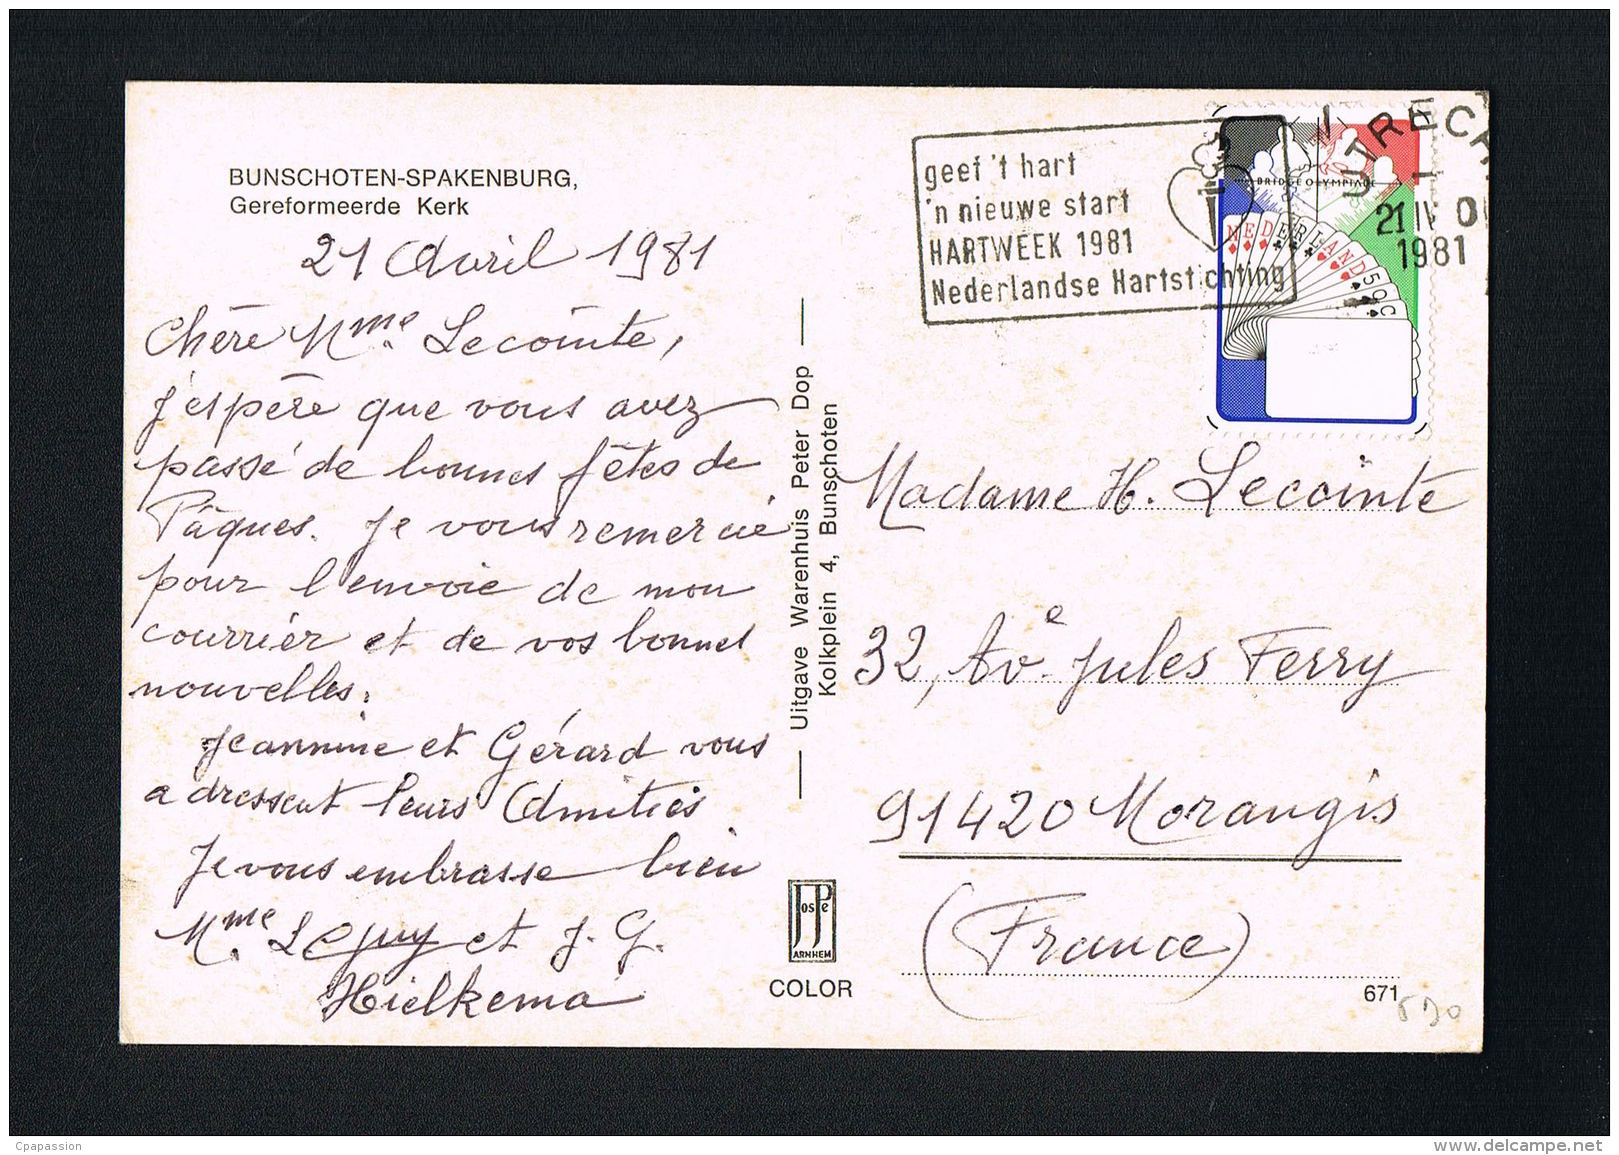 BUNSCHOTEN-SPAKENBURG,
Gereformeerde Kerk
21 Avril 1981
Chère Mme. Lecointe,
J'espère que vous avez
passé de bonnes fêtes de
Pâques. Je vous remercie
pour l'envoie de mon
courrier et de vos bonnes
nouvelles.
Jeannine et Gérard vous
adressent leurs Amitiés
Je vous embrasse bien
Mme. et J. G.
Hielkema
Uitgave Warenhuis Peter Dop
Kolkplein 4, Bunschoten
JosPe
ARNHEM
COLOR
geef 't hart
'n nieuwe start
HARTWEEK 1981
Nederlandse Hartstichting
UTRECH
21 IV
1981
BRIDGE OLYMPIADE
NEDERLAND 50C
Madame H. Lecointe
32, Ave. Jules Ferry
91420 Morangis
(France)
671
Cpapassion
www.delcampe.net